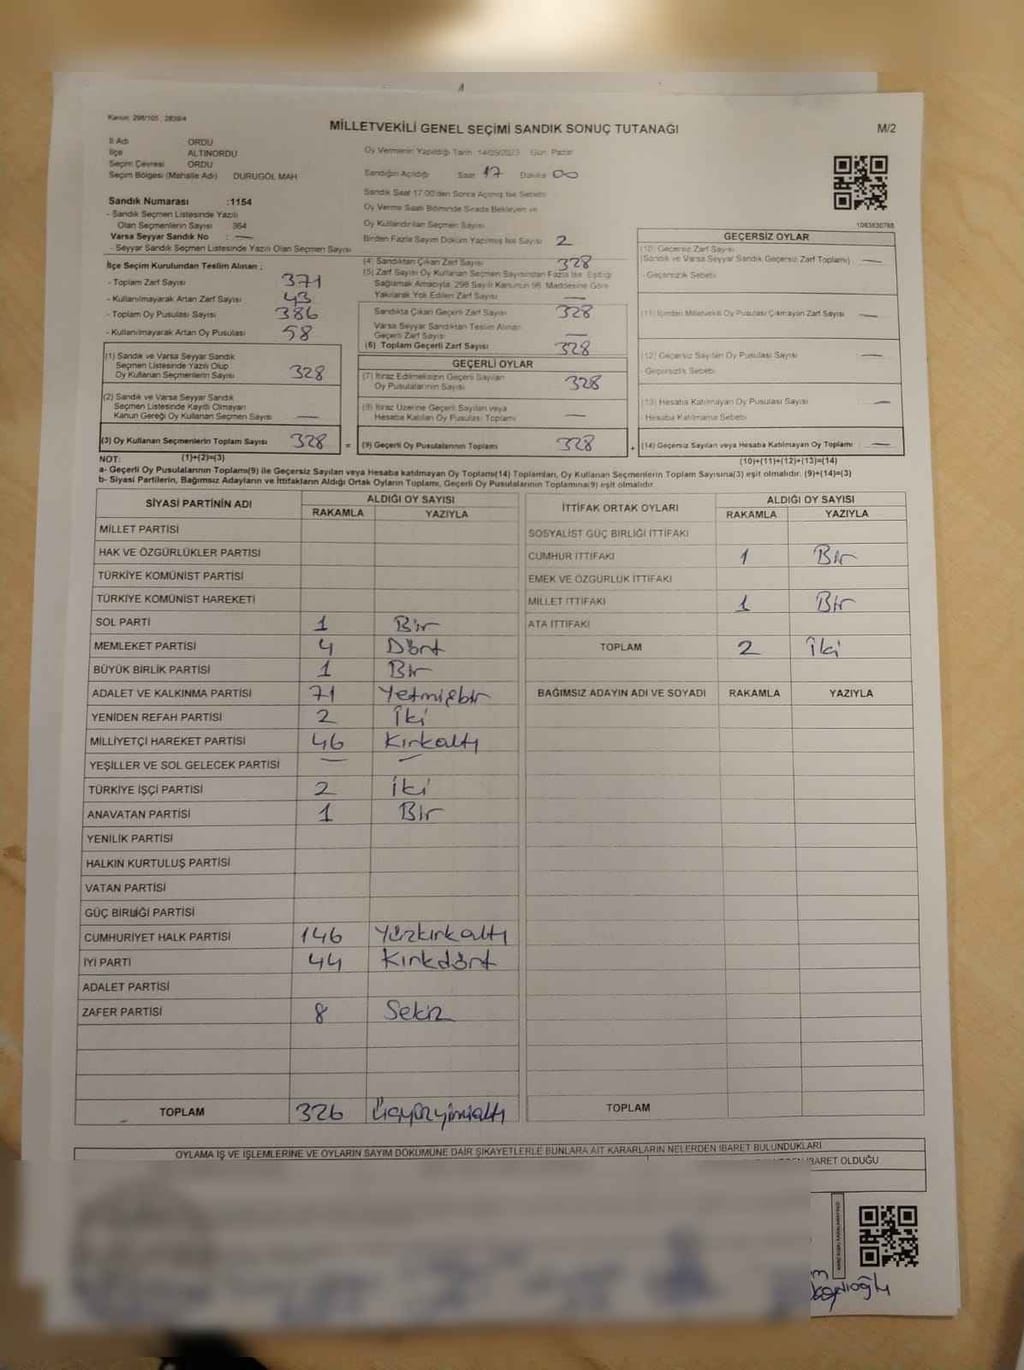 Kanun: 298/105 , 2839/4
MİLLETVEKİLİ GENEL SEÇİMİ SANDIK SONUÇ TUTANAĞI
M/2
İl Adı ORDU
İlçe ALTINORDU
Seçim Çevresi ORDU
Seçim Bölgesi (Mahalle Adı) DURUGÖL MAH
Sandık Numarası :1154
- Sandık Seçmen Listesinde Yazılı
Olan Seçmenlerin Sayısı 364
Varsa Seyyar Sandık No : —
- Seyyar Sandık Seçmen Listesinde Yazılı Olan Seçmen Sayısı
Oy Vermenin Yapıldığı Tarih 14/05/2023 Gün: Pazar
Sandığın Açıldığı Saat 17 Dakika 00
Sandık Saat 17:00'den Sonra Açılmış İse Sebebi
Oy Verme Saati Bitiminde Sırada Bekleyen ve
Oy Kullandırılan Seçmen Sayısı
Birden Fazla Sayım Döküm Yapılmış İse Sayısı 2
1083830788
İlçe Seçim Kurulundan Teslim Alınan ;
- Toplam Zarf Sayısı 371
- Kullanılmayarak Artan Zarf Sayısı 43
- Toplam Oy Pusulası Sayısı 386
- Kullanılmayarak Artan Oy Pusulası 58
(1) Sandık ve Varsa Seyyar Sandık
Seçmen Listesinde Yazılı Olup
Oy Kullanan Seçmenlerin Sayısı 328
(2) Sandık ve Varsa Seyyar Sandık
Seçmen Listesinde Kayıtlı Olmayan
Kanun Gereği Oy Kullanan Seçmen Sayısı —
(3) Oy Kullanan Seçmenlerin Toplam Sayısı 328 =
(4) Sandıktan Çıkan Zarf Sayısı 328
(5) Zarf Sayısı Oy Kullanan Seçmen Sayısından Fazla İse, Eşitliği
Sağlamak Amacıyla, 298 Sayılı Kanunun 98. Maddesine Göre
Yakılarak Yok Edilen Zarf Sayısı —
Sandıkta Çıkan Geçerli Zarf Sayısı 328
Varsa Seyyar Sandıktan Teslim Alınan
Geçerli Zarf Sayısı —
(6) Toplam Geçerli Zarf Sayısı 328
GEÇERLİ OYLAR
(7) İtiraz Edilmeksizin Geçerli Sayılan
Oy Pusulalarının Sayısı 328
(8) İtiraz Üzerine Geçerli Sayılan veya
Hesaba Katılan Oy Pusulası Toplamı —
(9) Geçerli Oy Pusulalarının Toplamı 328 +
GEÇERSİZ OYLAR
(10) Geçersiz Zarf Sayısı
(Sandık ve Varsa Seyyar Sandık Geçersiz Zarf Toplamı) —
- Geçersizlik Sebebi
(11) İçinden Milletvekili Oy Pusulası Çıkmayan Zarf Sayısı —
(12) Geçersiz Sayılan Oy Pusulası Sayısı —
Geçersizlik Sebebi
(13) Hesaba Katılmayan Oy Pusulası Sayısı —
Hesaba Katılmama Sebebi
(14) Geçersiz Sayılan veya Hesaba Katılmayan Oy Toplamı —
NOT: (1)+(2)=(3)
(10)+(11)+(12)+(13)=(14)
a- Geçerli Oy Pusulalarının Toplamı(9) ile Geçersiz Sayılan veya Hesaba katılmayan Oy Toplamı(14) Toplamları, Oy Kullanan Seçmenlerin Toplam Sayısına(3) eşit olmalıdır. (9)+(14)=(3)
b- Siyasi Partilerin, Bağımsız Adayların ve İttifakların Aldığı Ortak Oyların Toplamı, Geçerli Oy Pusulalarının Toplamına(9) eşit olmalıdır.
SİYASİ PARTİNİN ADI ALDIĞI OY SAYISI
RAKAMLA YAZIYLA
MİLLET PARTİSİ
HAK VE ÖZGÜRLÜKLER PARTİSİ
TÜRKİYE KOMÜNİST PARTİSİ
TÜRKİYE KOMÜNİST HAREKETİ
SOL PARTİ 1 Bir
MEMLEKET PARTİSİ 4 Dört
BÜYÜK BİRLİK PARTİSİ 1 Bir
ADALET VE KALKINMA PARTİSİ 71 Yetmişbir
YENİDEN REFAH PARTİSİ 2 İki
MİLLİYETÇİ HAREKET PARTİSİ 46 Kırkaltı
YEŞİLLER VE SOL GELECEK PARTİSİ — —
TÜRKİYE İŞÇİ PARTİSİ 2 İki
ANAVATAN PARTİSİ 1 Bir
YENİLİK PARTİSİ
HALKIN KURTULUŞ PARTİSİ
VATAN PARTİSİ
GÜÇ BİRLİĞİ PARTİSİ
CUMHURİYET HALK PARTİSİ 146 Yüzkırkaltı
İYİ PARTİ 44 Kırkdört
ADALET PARTİSİ
ZAFER PARTİSİ 8 Sekiz
TOPLAM 326 Üçyüzyirmialtı
İTTİFAK ORTAK OYLARI ALDIĞI OY SAYISI
RAKAMLA YAZIYLA
SOSYALİST GÜÇ BİRLİĞİ İTTİFAKI
CUMHUR İTTİFAKI 1 Bir
EMEK VE ÖZGÜRLÜK İTTİFAKI
MİLLET İTTİFAKI 1 Bir
ATA İTTİFAKI
TOPLAM 2 İki
BAĞIMSIZ ADAYIN ADI VE SOYADI RAKAMLA YAZIYLA
TOPLAM
OYLAMA İŞ VE İŞLEMLERİNE VE OYLARIN SAYIM DÖKÜMÜNE DAİR ŞİKAYETLERLE BUNLARA AİT KARARLARIN NELERDEN İBARET BULUNDUKLARI
İBARET OLDUĞU